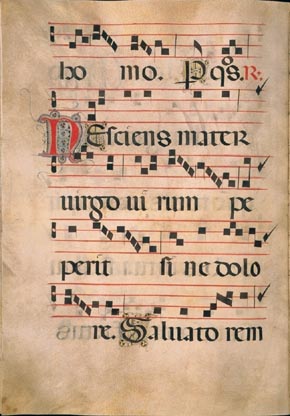 ho mo. Pqs. R:
Nesciens mater
uirgo ui rum pe
perit si ne dolo
re. Saluato rem